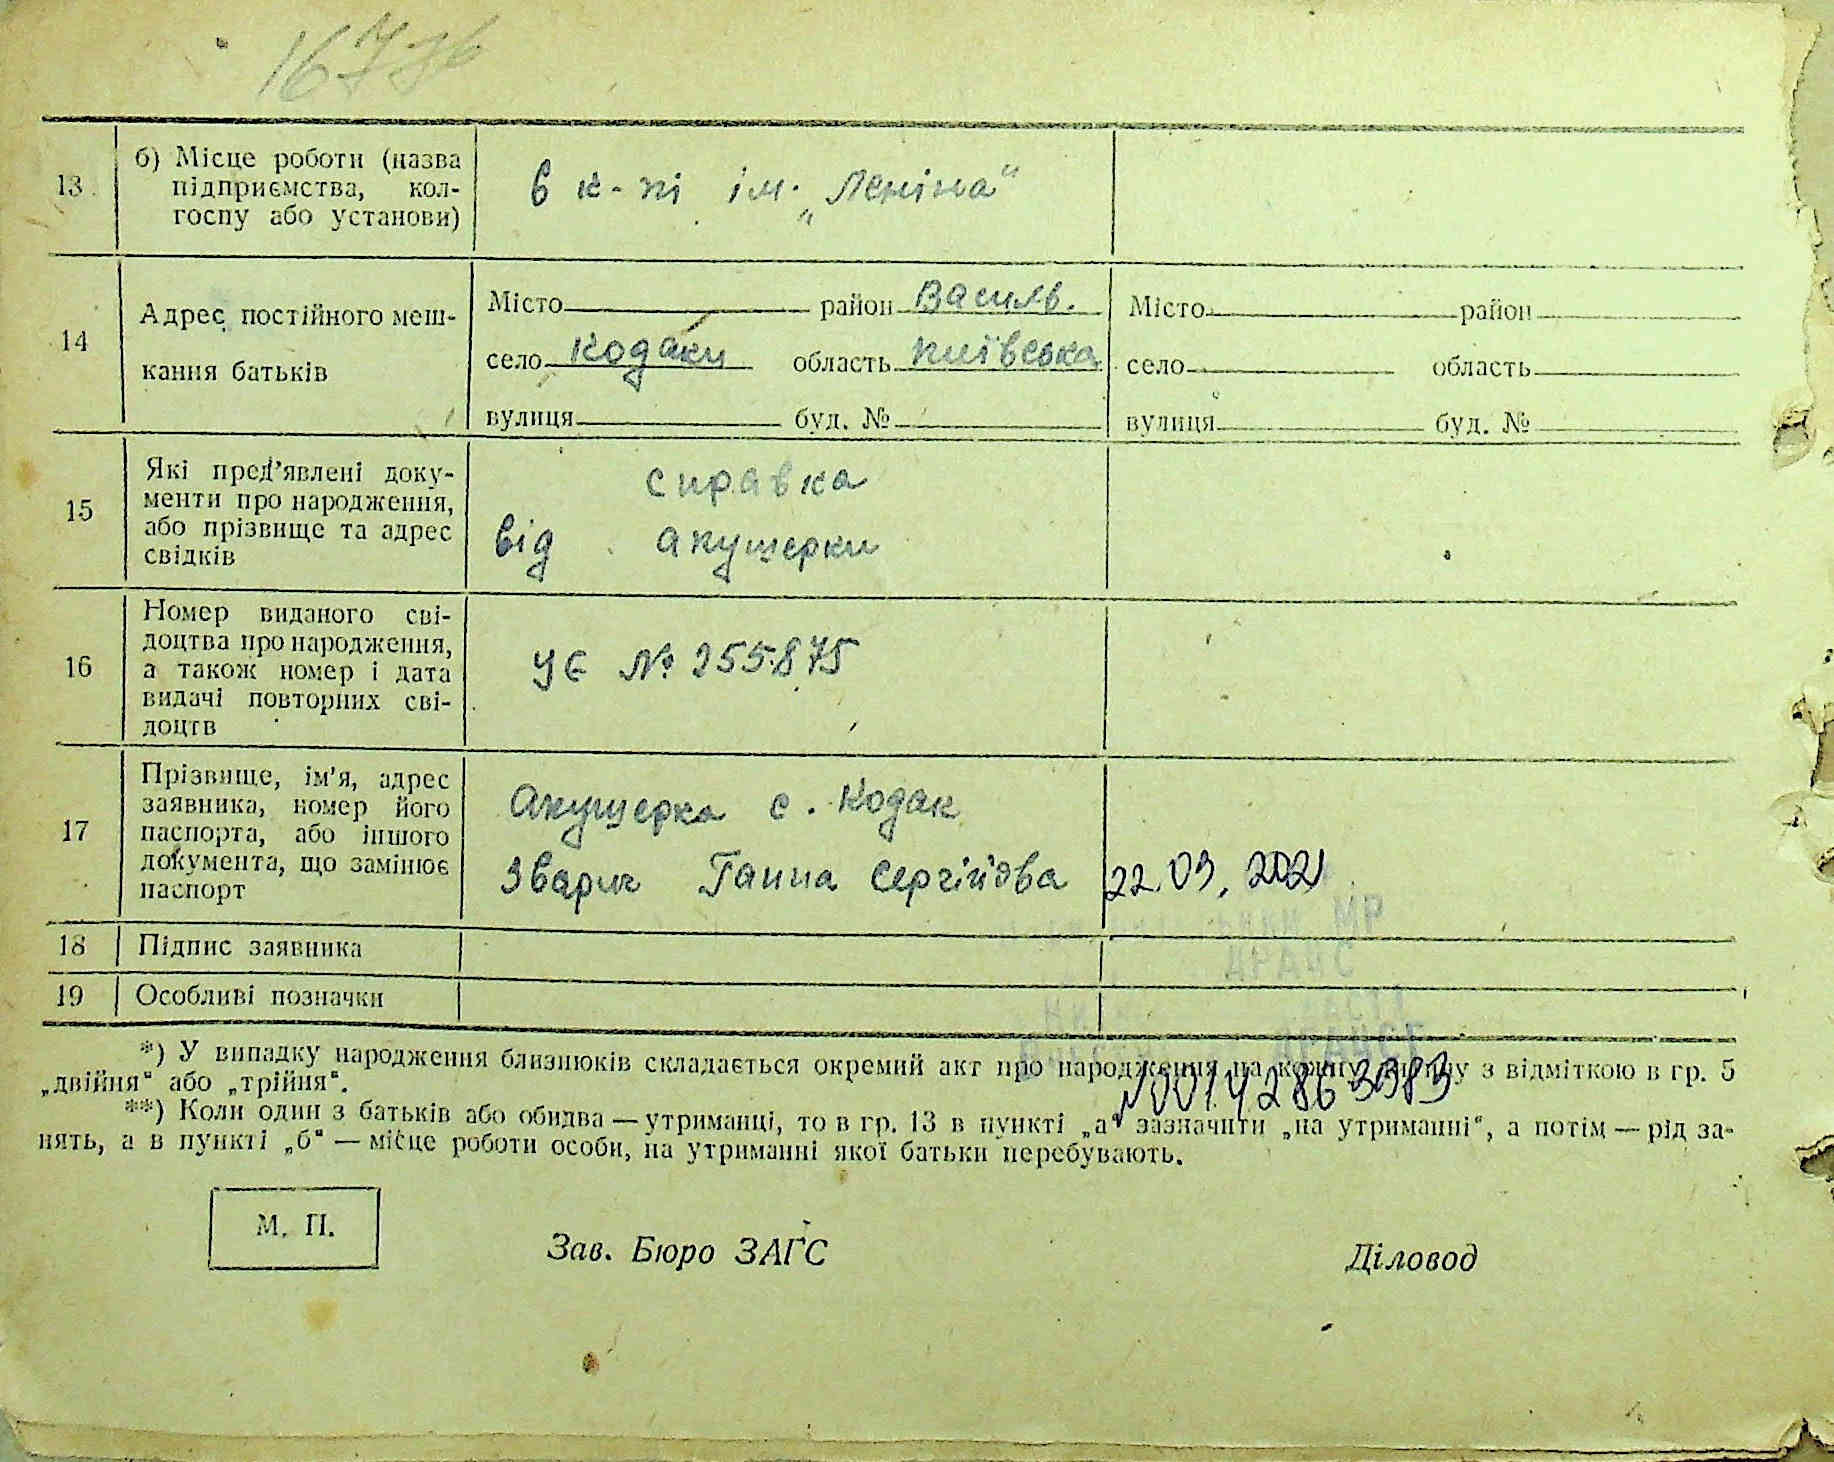 13 б) Місце роботи (назва
підприємства, кол-
госпу або установи)
в к-пі ім. „Леніна“
14 Адрес постійного меш-
кання батьків
Місто район Василь. Місто район
село Кодаки область Київська село область
вулиця буд. № вулиця буд. №
15 Які пред’явлені доку-
менти про народження,
або прізвище та адрес
свідків
справка
від акушерки
16 Номер виданого сві-
доцтва про народження,
а також номер і дата
видачі повторних сві-
доцтв
УЄ № 255875
17 Прізвище, ім’я, адрес
заявника, номер його
паспорта, або іншого
документа, що замінює
паспорт
Акушерка с. Кодак
Зварич Ганна Сергіївва 22.09.2021
МР
18 Підпис заявника
19 Особливі позначки
*) У випадку народження близнюків складається окремий акт про народження на кожну дитину з відміткою в гр. 5
„двійня“ або „трійня“.
№00142863983
**) Коли один з батьків або обидва — утриманці, то в гр. 13 в пункті „а“ зазначити „на утриманні“, а потім — рід за-
нять, а в пункті „б“ — місце роботи особи, на утриманні якої батьки перебувають.
М. П.
Зав. Бюро ЗАГС Діловод